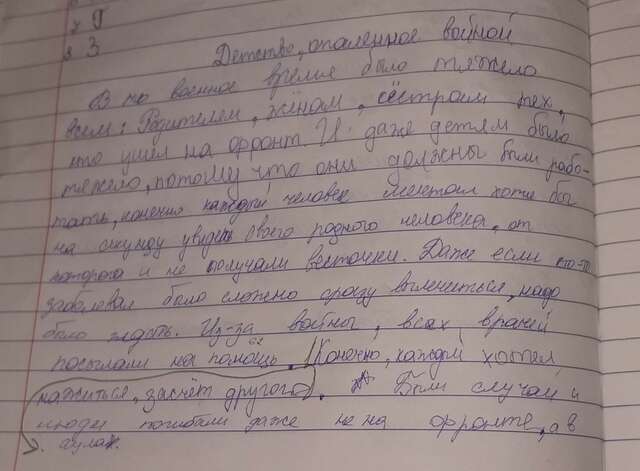 7 9
8 3
Детство, опаленное войной
В то военное время было тяжело
всем: Родителем, жёнам, сёстрам тех,
кто ушел на фронт. И даже детям было
тяжело, потому что они должны были рабо-
тать, конечно каждый человек мечтал хотя бы
на секунду увидеть своего родного человека, от
которого и не получали весточки. Даже если кто-то
заболевал было сложно сразу вылечиться, надо
было ждать. Из-за войны, всех врачей
посылали на помощь. Конечно, каждый хотел
нажиться, засчёт другого. Были случаи и
люди погибали даже не на фронте, а в
аулах.